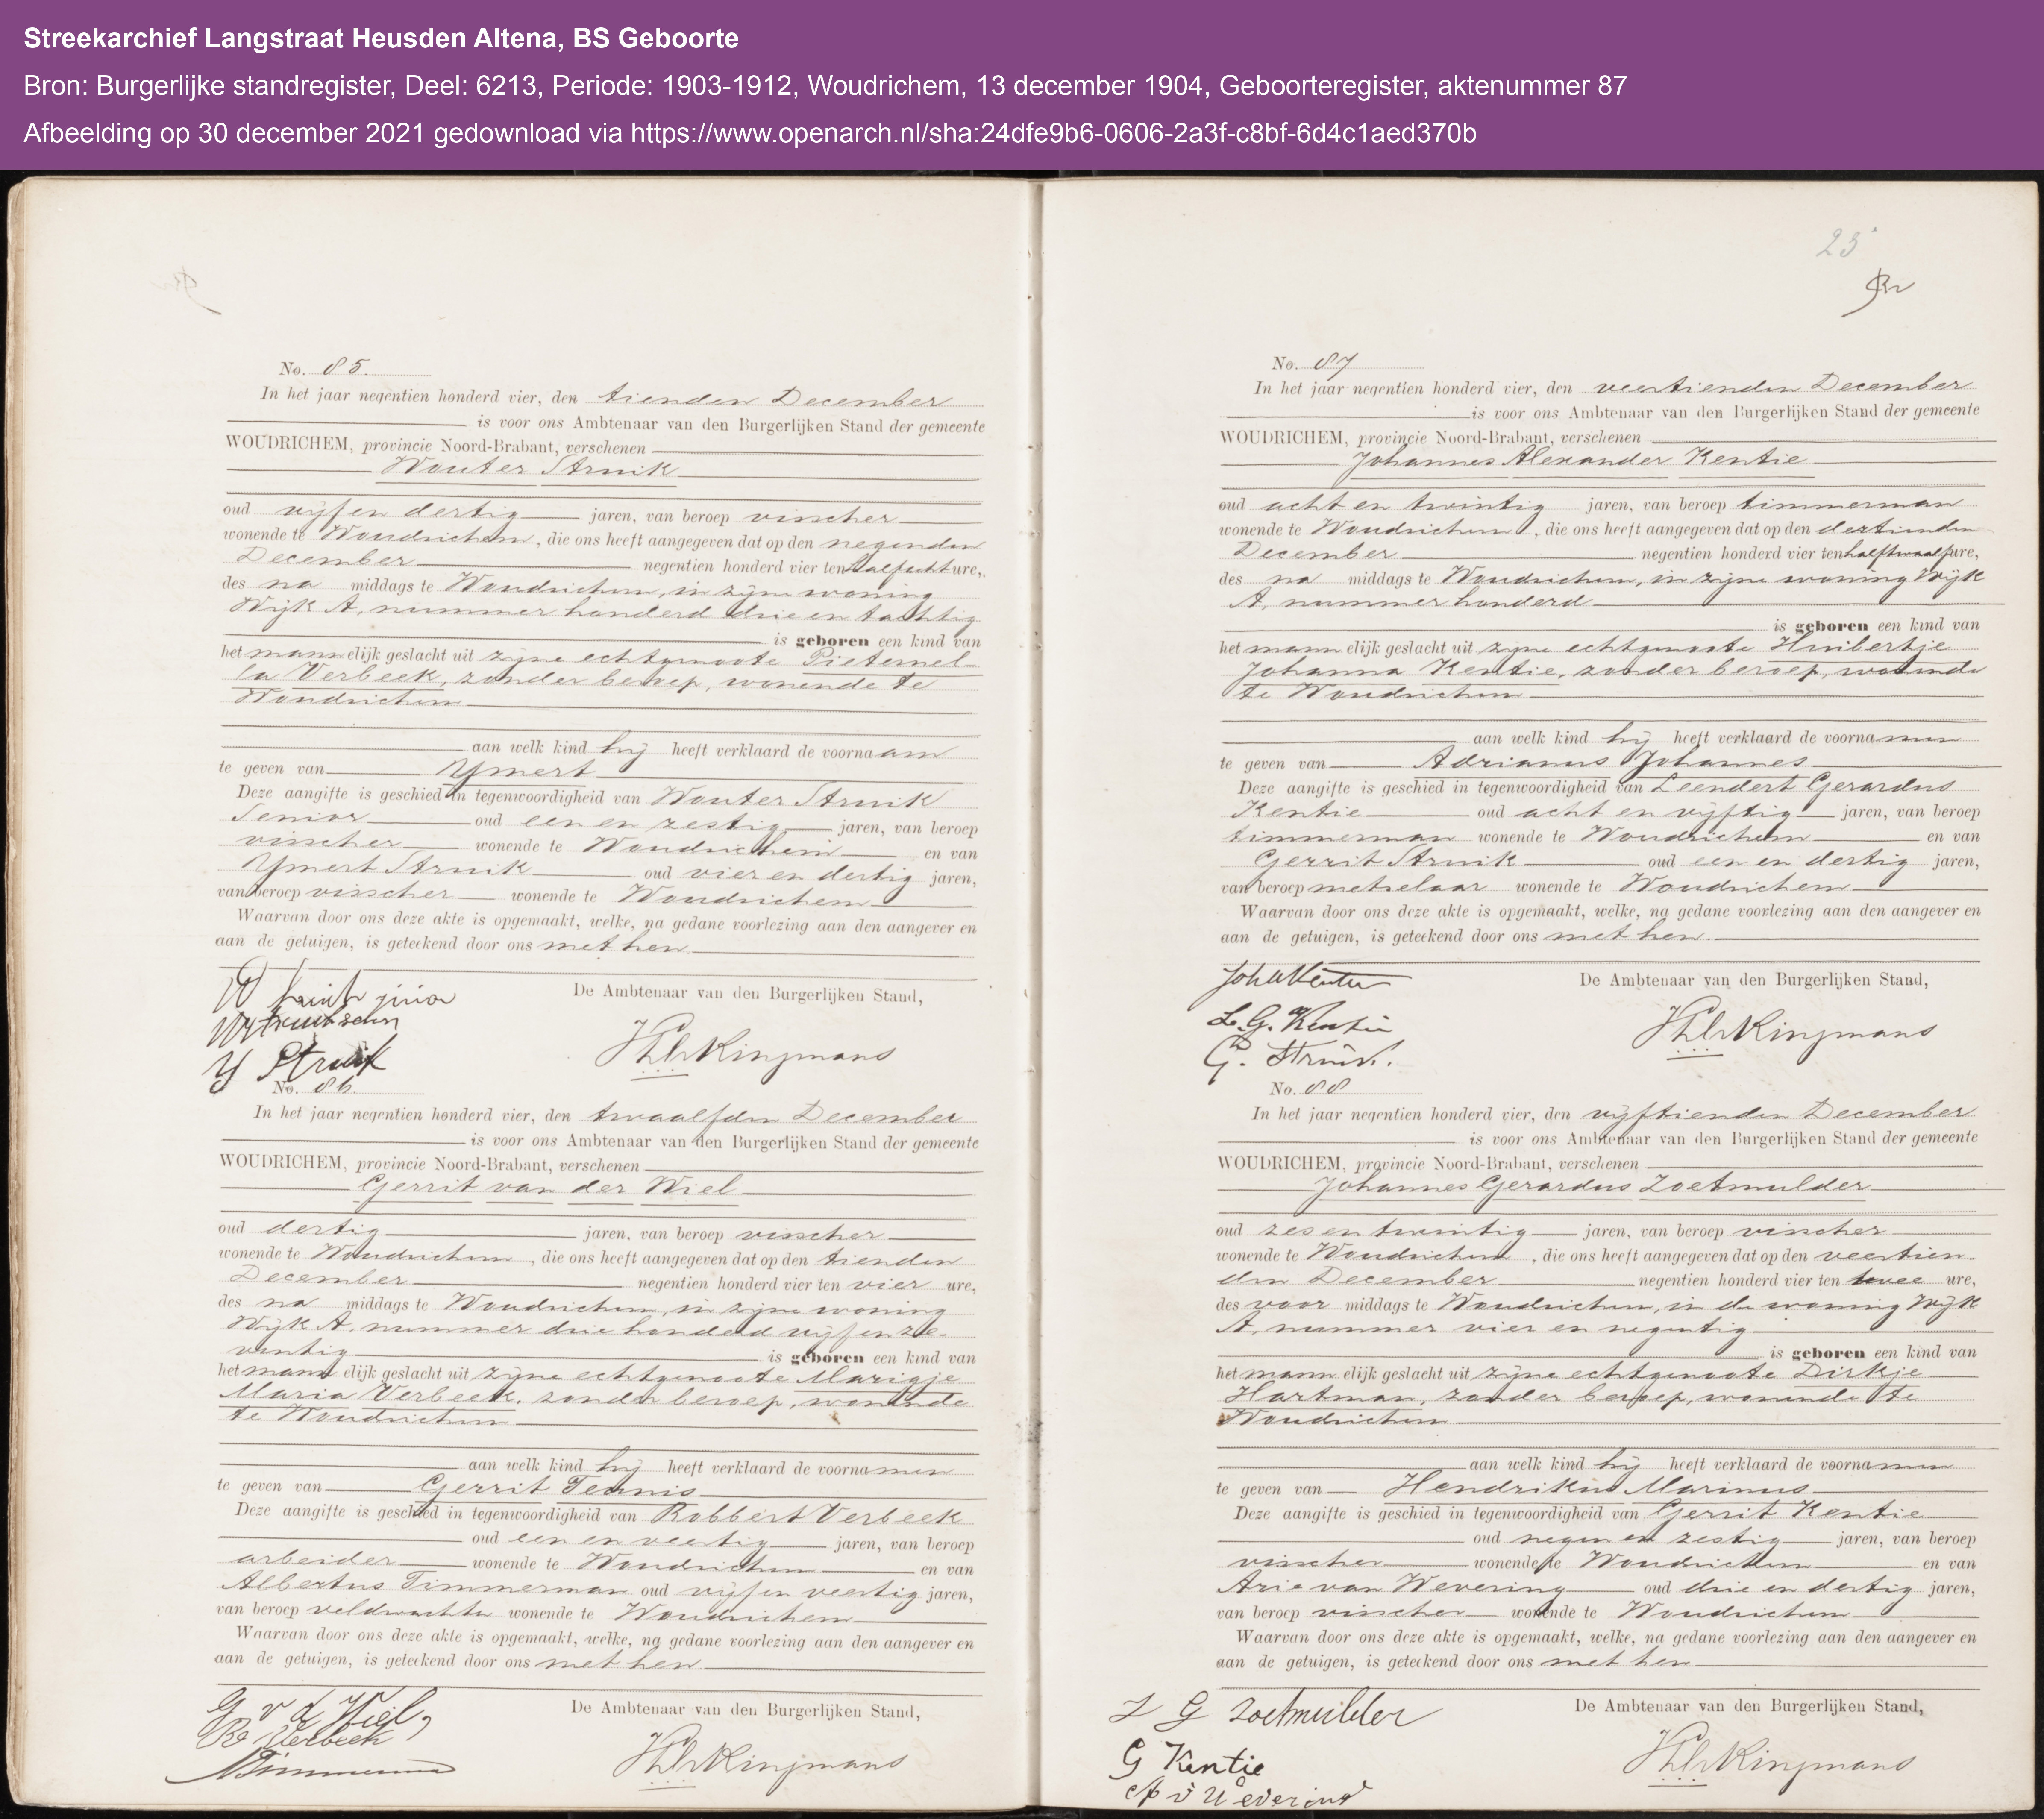 Streekarchief Langstraat Heusden Altena, BS Geboorte
Bron: Burgerlijke standregister, Deel: 6213, Periode: 1903-1912, Woudrichem, 13 december 1904, Geboorteregister, aktenummer 87
Afbeelding op 30 december 2021 gedownload via https://www.openarch.nl/sha:24dfe9b6-0606-2a3f-c8bf-6d4c1aed370b
No. 85.
In het jaar negentien honderd vier, den tienden December
is voor ons Ambtenaar van den Burgerlijken Stand der gemeente
WOUDRICHEM, provincie Noord-Brabant, verschenen
Wouter Struik
oud vijf en dertig jaren, van beroep visscher
wonende te Woudrichem, die ons heeft aangegeven dat op den negenden
December negentien honderd vier ten half acht ure,
des na middags te Woudrichem, in zijne woning
Wijk A, nummer honderd drie en tachtig
is geboren een kind van
het mannelijk geslacht uit zijne echtgenoote Pieternel-
la Verbeek, zonder beroep, wonende te
Woudrichem
aan welk kind hij heeft verklaard de voornaam
te geven van Ymert
Deze aangifte is geschied in tegenwoordigheid van Wouter Struik
Senior oud een en zestig jaren, van beroep
visscher wonende te Woudrichem en van
Ymert Struik oud vier en dertig jaren,
van beroep visscher wonende te Woudrichem
Waarvan door ons deze akte is opgemaakt, welke, na gedane voorlezing aan den aangever en
aan de getuigen, is geteekend door ons met hen
De Ambtenaar van den Burgerlijken Stand,
Y Struik
No. 86.
In het jaar negentien honderd vier, den twaalfden December
is voor ons Ambtenaar van den Burgerlijken Stand der gemeente
WOUDRICHEM, provincie Noord-Brabant, verschenen
Gerrit van der Wiel
oud dertig jaren, van beroep visscher
wonende te Woudrichem, die ons heeft aangegeven dat op den tienden
December negentien honderd vier ten vier ure,
des na middags te Woudrichem, in zijne woning
Wijk A, nummer drie honderd vijf en ze-
ventig is geboren een kind van
het mannelijk geslacht uit zijne echtgenoote Marigje
Maria Verbeek, zonder beroep, wonende
te Woudrichem
aan welk kind hij heeft verklaard de voornamen
te geven van Gerrit Teunis
Deze aangifte is geschied in tegenwoordigheid van Robbert Verbeek
oud een en veertig jaren, van beroep
arbeider wonende te Woudrichem en van
Albertus Timmerman oud vijf en veertig jaren,
van beroep veldwachter wonende te Woudrichem
Waarvan door ons deze akte is opgemaakt, welke, na gedane voorlezing aan den aangever en
aan de getuigen, is geteekend door ons met hen
De Ambtenaar van den Burgerlijken Stand,
G v d Wiel
Verbeek
25
No. 87
In het jaar negentien honderd vier, den veertienden December
is voor ons Ambtenaar van den Burgerlijken Stand der gemeente
WOUDRICHEM, provincie Noord-Brabant, verschenen
Johannes Alexander Kentie
oud acht en twintig jaren, van beroep timmerman
wonende te Woudrichem, die ons heeft aangegeven dat op den dertienden
December negentien honderd vier ten half twaalf ure,
des na middags te Woudrichem, in zijne woning Wijk
A, nummer honderd
is geboren een kind van
het mannelijk geslacht uit zijne echtgenoote Huibertje
Johanna Kentie, zonder beroep, wonende
te Woudrichem
aan welk kind hij heeft verklaard de voornamen
te geven van Adrianus Johannes
Deze aangifte is geschied in tegenwoordigheid van Leendert Gerardus
Kentie oud acht en vijftig jaren, van beroep
timmerman wonende te Woudrichem en van
Gerrit Struik oud een en dertig jaren,
van beroep metselaar wonende te Woudrichem
Waarvan door ons deze akte is opgemaakt, welke, na gedane voorlezing aan den aangever en
aan de getuigen, is geteekend door ons met hen.
De Ambtenaar van den Burgerlijken Stand,
L. G. Kentie
G. Struik.
No. 88
In het jaar negentien honderd vier, den vijftienden December
is voor ons Ambtenaar van den Burgerlijken Stand der gemeente
WOUDRICHEM, provincie Noord-Brabant, verschenen
Johannes Gerardus Zoetmulder
oud zes en twintig jaren, van beroep visscher
wonende te Woudrichem, die ons heeft aangegeven dat op den veertien-
den December negentien honderd vier ten twee ure,
des voor middags te Woudrichem, in de woning Wijk
A, nummer vier en negentig
is geboren een kind van
het mannelijk geslacht uit zijne echtgenoote Dirkje
Hartman, zonder beroep, wonende te
Woudrichem
aan welk kind hij heeft verklaard de voornamen
te geven van Hendrikus Marinus
Deze aangifte is geschied in tegenwoordigheid van Gerrit Kentie
oud negen en zestig jaren, van beroep
visscher wonende te Woudrichem en van
Arie van Wevering oud drie en dertig jaren,
van beroep visscher wonende te Woudrichem
Waarvan door ons deze akte is opgemaakt, welke, na gedane voorlezing aan den aangever en
aan de getuigen, is geteekend door ons met hen
De Ambtenaar van den Burgerlijken Stand,
G Zoetmulder
G Kentie